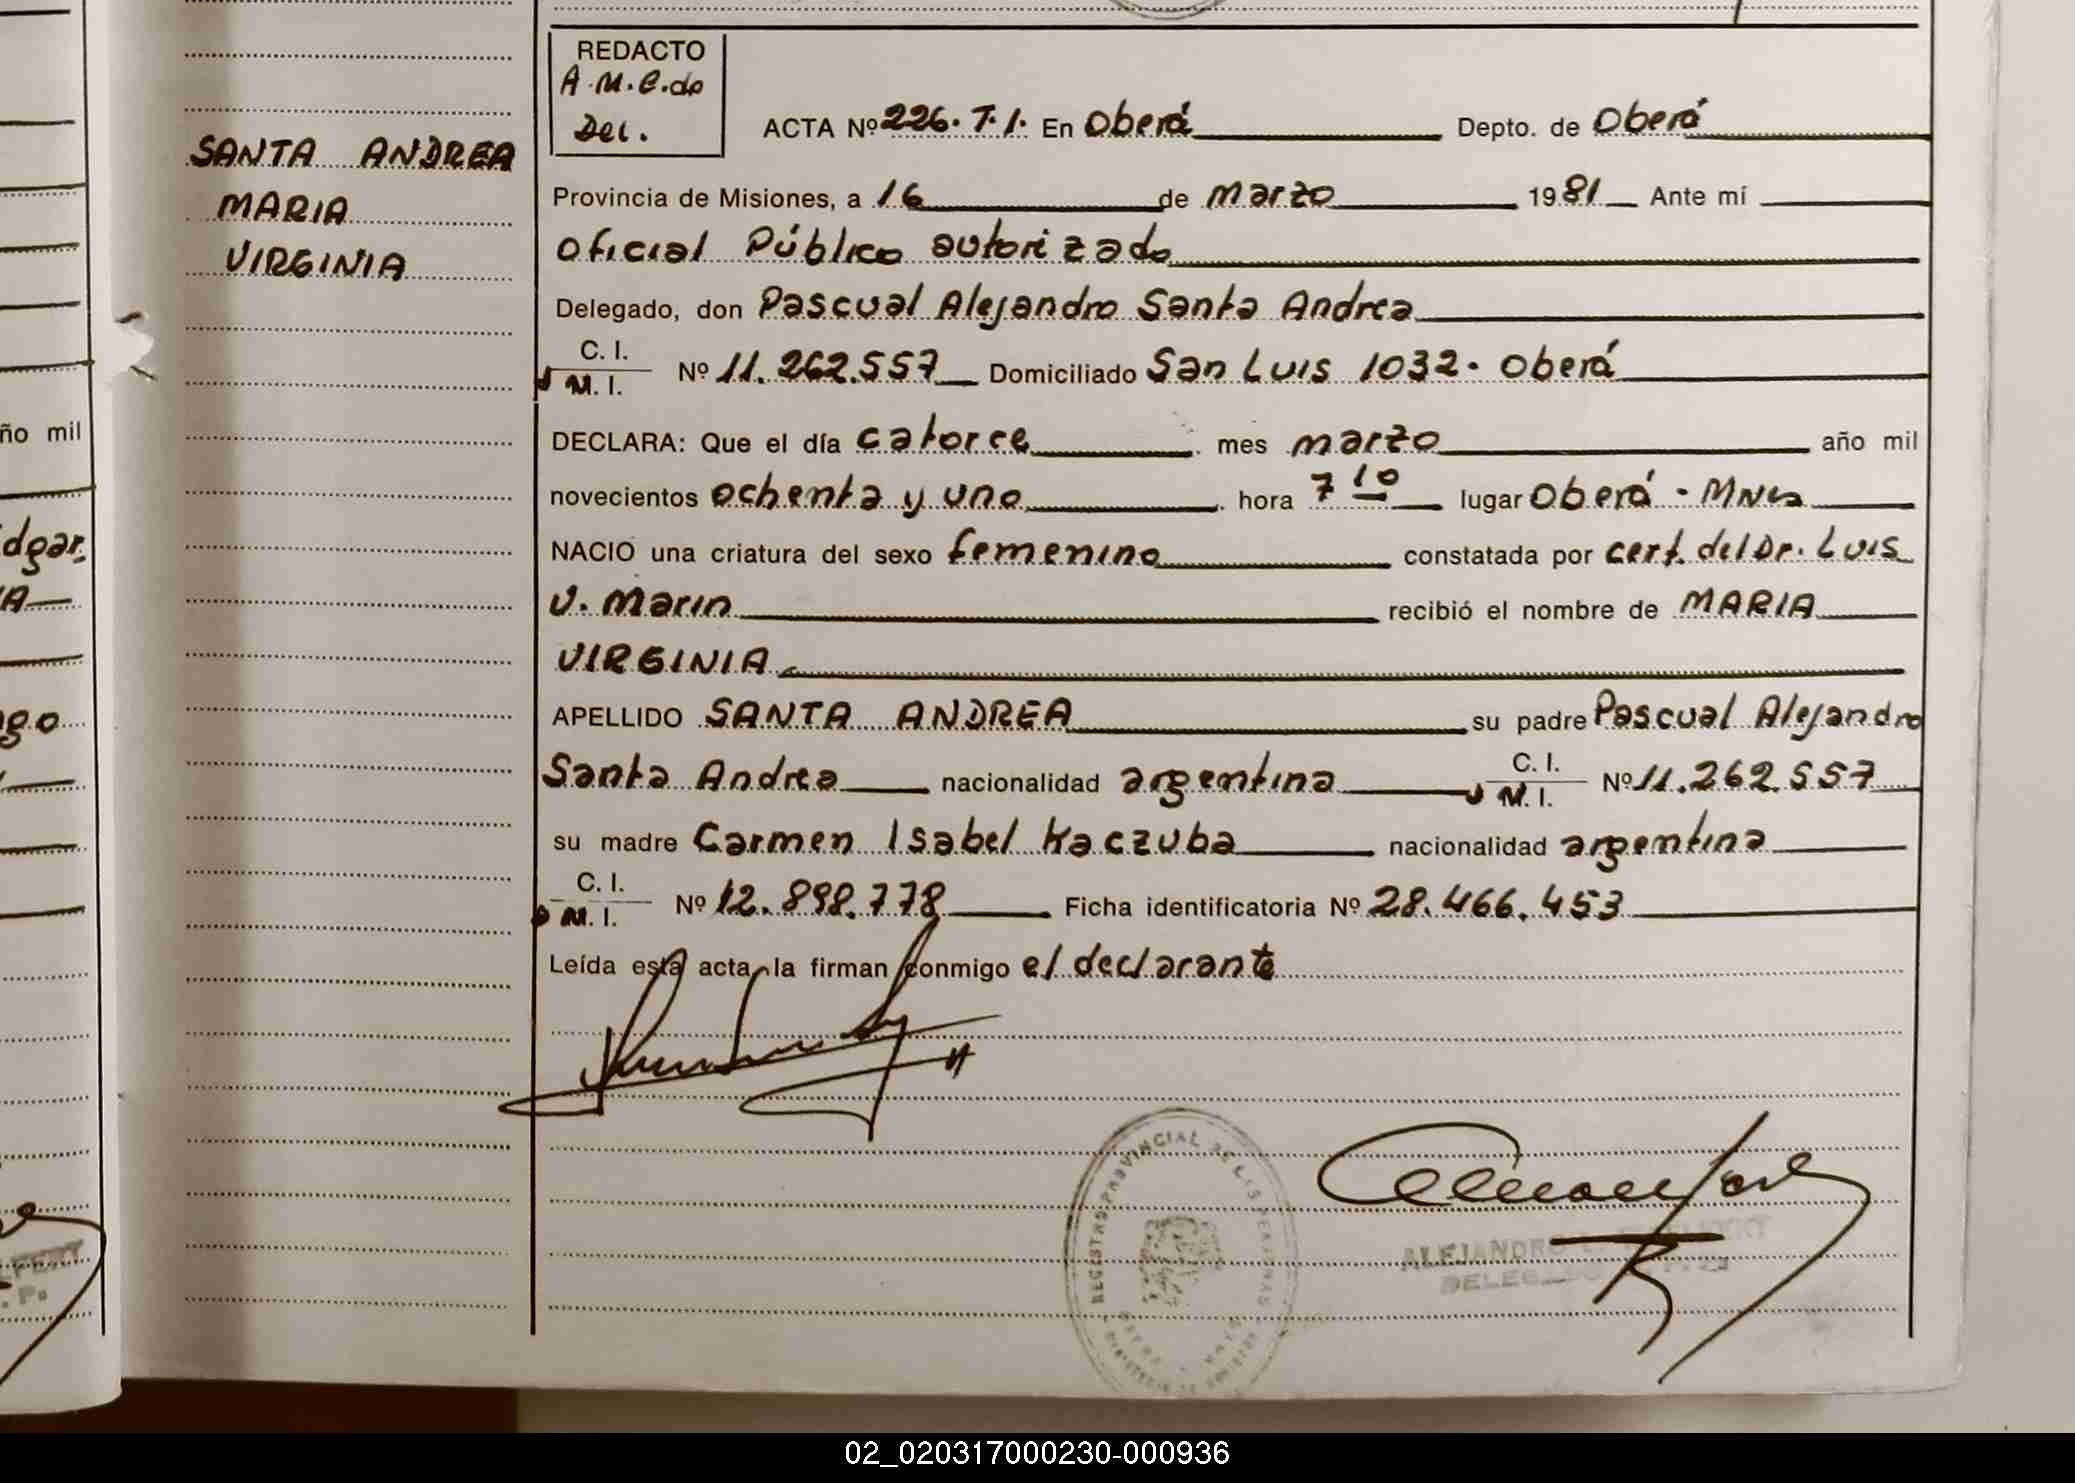 REDACTO
A.M.C.do
Del.
ACTA Nº 226. T.1. En Oberá Depto. de Oberá
SANTA ANDREA
MARIA
VIRGINIA
Provincia de Misiones, a 16 de marzo 1981 Ante mí
Oficial Público autorizado
Delegado, don Pascual Alejandro Santa Andrea
C. I.
M. I. Nº 11.262.557 Domiciliado San Luis 1032. Oberá
DECLARA: Que el día catorce mes marzo año mil
novecientos ochenta y uno hora 7 10 lugar Oberá - Mnes
NACIO una criatura del sexo femenino constatada por cert. del Dr. Luis
V. Marin recibió el nombre de MARIA
VIRGINIA
APELLIDO SANTA ANDREA su padre Pascual Alejandro
Santa Andrea nacionalidad argentina C. I. M. I. Nº 11.262.557
su madre Carmen Isabel Kaczuba nacionalidad argentina
C. I.
M. I. Nº 12.898.778 Ficha identificatoria Nº 28.466.453
Leída esta acta, la firman conmigo el declarante
REGISTRO PROVINCIAL DE LAS PERSONAS
ALEJANDRO
ño mil
dgar
go
02_020317000230-000936